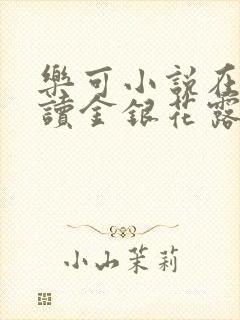 樂可小說在
讀金銀花露
小山茉莉